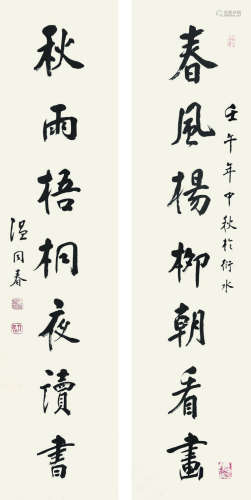 春風楊柳朝看畫
壬午年中秋於衍水
秋雨梧桐夜讀書
温同春